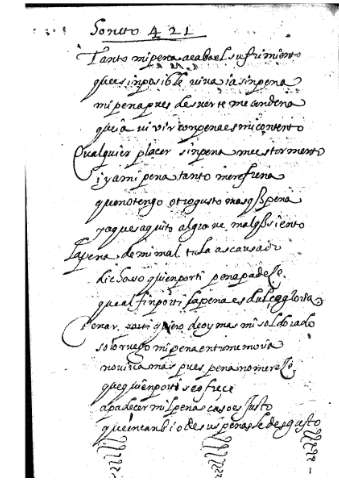 Soneto 421
Tanto mi pena acaba el sufrimiento
que es inposible uiua ia sin pena
mi pena pues de suerte me condena
que a uiuir con pena es mi contento
Qualquier placer sin pena me es tormento
i ya mi pena tanto me refrena
que no tengo otro gusto mas q pena
ya questa quito algraue mal q siento
la pena de mi mal tu la as causado
dichoso quien por ti pena padeçe
que al fin por ti la pena es dulçe gloria
Penar quiero de oy mas mi sol dorado
solo ruego mi pena en tu memoria
no uiua mas pues pena no mereçe
que quien por ti se ofreçe
a padeçer mil penas cas es justo
que en canbio de sus penas le des gusto